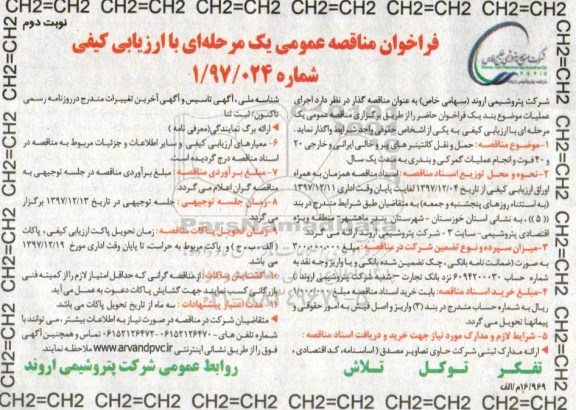 CH2=CH2 CH2=CH2 CH2=CH2 CH2=CH2 CH2=CH2 CH2=CH2
نوبت دوم
فراخوان مناقصه عمومی یک مرحله‌ای با ارزیابی کیفی
شماره ۱/۹۷/۰۲۴
شرکت پتروشیمی اروند (سهامی خاص) به عنوان مناقصه گذار در نظر دارد اجرای
عملیات موضوع بند یک فراخوان حاضر را از طریق برگزاری مناقصه عمومی یک
مرحله ای با ارزیابی کیفی به یکی از اشخاص حقوقی واجد شرایط واگذار نماید.
۱-موضوع مناقصه: حمل و نقل کانتینرهای پر و خالی ایرانی و خارجی ۲۰
و ۴۰ فوت و انجام عملیات گمرکی و بندری به مدت یک سال
۲-نحوه و محل توزیع اسناد مناقصه: اسناد مناقصه همزمان به همراه
اوراق ارزیابی کیفی از تاریخ ۱۳۹۷/۱۲/۰۴ لغایت پایان وقت اداری ۱۳۹۷/۱۲/۱۱
(به استثناء روزهای پنجشنبه و جمعه) به متقاضیان طبق شرایط مندرج در بند
((۵))، به نشانی استان خوزستان - شهرستان بندر ماهشهر - منطقه ویژه
اقتصادی پتروشیمی - سایت ۳ - شرکت پتروشیمی اروند
۳-میزان سپرده و نوع تضمین شرکت در مناقصه: مبلغ
به صورت (ضمانت نامه بانکی، چک تضمین شده بانکی و یا واریز وجه نقد به
شماره حساب ۶۰۹۴۲۰۰۰۳۰ نزد بانک تجارت - شعبه شرکت پتروشیمی اروند)
۴-مبلغ خرید اسناد مناقصه: بابت خرید اسناد مناقصه مبلغ
ریال به شماره حساب مندرج در بند (۳) واریز و اصل فیش به امور حقوقی و
پیمانها تحویل می گردد.
۵- شرایط لازم و مدارک مورد نیاز جهت خرید و دریافت اسناد مناقصه:
*ارائه مدارک ثبتی شرکت حاوی تصاویر مصدق (اساسنامه، کد اقتصادی،
شناسه ملی، آگهی تاسیس و آگهی آخرین تغییرات مندرج در روزنامه رسمی
تاکنون) ثبت ثنا
*ارائه برگ نمایندگی (معرفی نامه)
۶- معیارهای ارزیابی کیفی و سایر اطلاعات و جزئیات مربوط به مناقصه در
اسناد مناقصه درج گردیده است.
۷- مبلغ برآوردی مناقصه: مبلغ برآوردی مناقصه در جلسه توجیهی به
مناقصه گران اعلام می گردد.
۸- زمان جلسه توجیهی: جلسه توجیهی در تاریخ ۱۳۹۷/۱۲/۱۳ برگزار
می گردد.
۹- زمان تحویل پاکات مناقصه: زمان تحویل پاکت ارزیابی کیفی، پاکات
(الف، ب، ج) و پاکت مربوط به حراست، تا پایان وقت اداری مورخ ۱۳۹۷/۱۲/۱۹
می باشد
۱۰- گشایش پاکات: از مناقصه گرانی که حداقل امتیاز لازم را از کمیته فنی
بازرگانی کسب نمایند جهت گشایش پاکات دعوت به عمل می آید.
مدت اعتبار پیشنهادات: سه ماه از تاریخ تحویل پاکات می باشد.
* متقاضیان شرکت در مناقصه در صورت نیاز به اطلاعات بیشتر، می توانند با
شماره تلفن های ۰۶۱۵۲۱۲۶۴۷۰-۰۶۱۵۲۱۲۶۴۷۲ تماس و همچنین آگهی
فوق را از طریق نشانی اینترنتی www.arvandpvc.ir ملاحظه نمایند.
تفکر توکل تلاش
روابط عمومی شرکت پتروشیمی اروند
۱۶/۹۶۹/م/الف
CH2=CH2 CH2=CH2 CH2=CH2 CH2=CH2 CH2=CH2 CH2=CH2